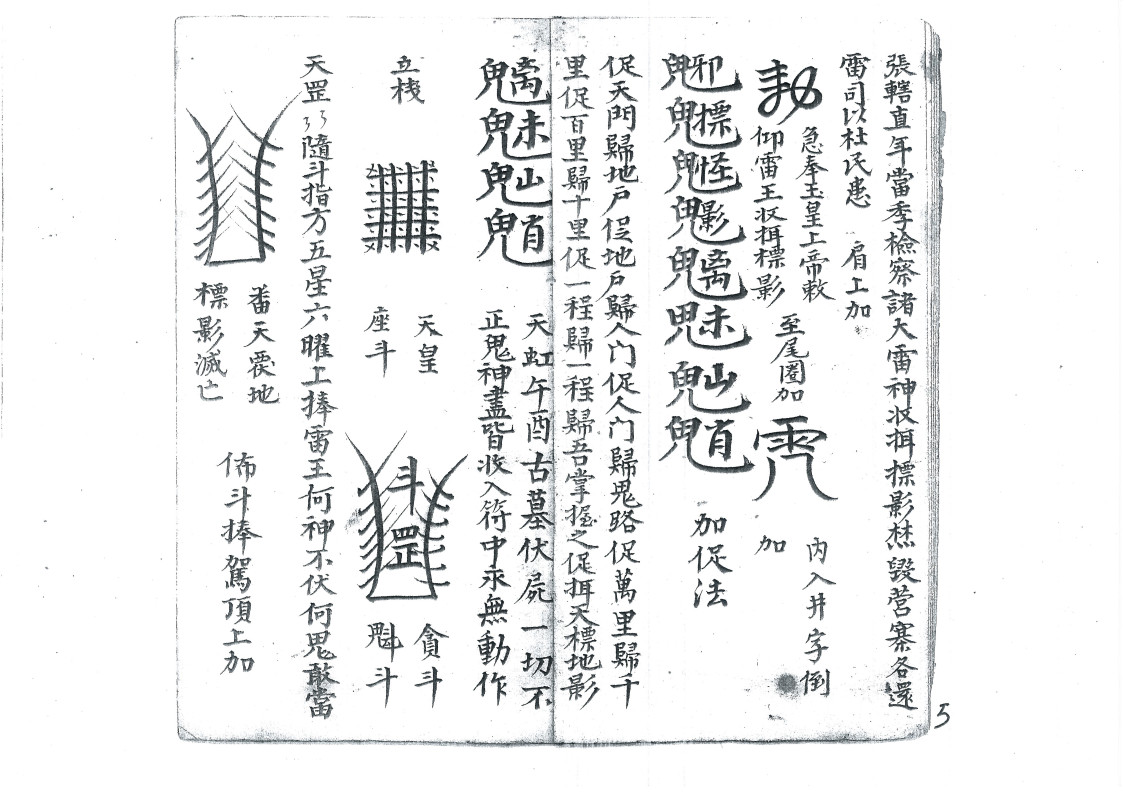 張轄直年當季檢察諸大雷神收捐標影燃毀营寨各還
雷司以杜民患 肩上加
勅
急奉玉皇上帝敕
仰雷王收捐標影
至尾圈加
內入井字倒
加
加促法
促天門歸地戸促地戸歸人门促人门歸鬼路促萬里歸千
里促百里歸十里促一程歸一程歸吾掌握之促捐天標地影
天虹午酉古墓伏屍一切不
正鬼神盡皆收入符中永無動作
立栈
天皇
座斗
斗罡
貪斗
魁斗
天罡々々隨斗指方五星六曜上捧雷王何神不伏何鬼敢當
番天震地
標影滅亡
佈斗捧駕頂上加
5